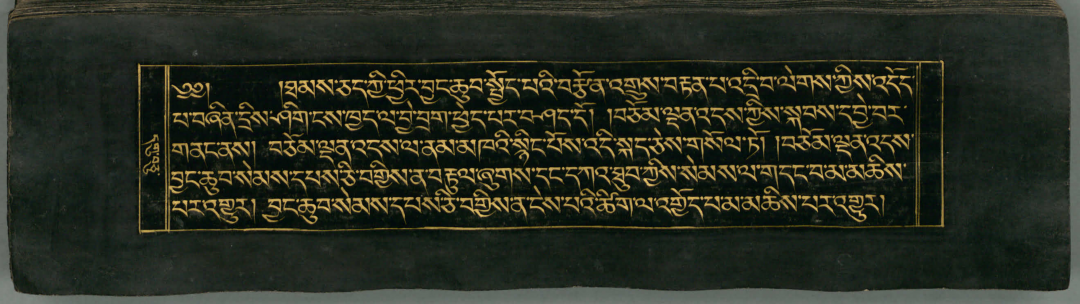 ༄༅། །ཐམས་ཅད་ཀྱི་ཕྱིར་བྱང་ཆུབ་སྦྱོད་པའི་བརྩོན་འགྲུས་བརྟན་པ་འདྲི་བ་ལེགས་ཀྱིས་འདོད་
པ་བཞིན་དྲིས་ཤིག་ངས་ཁྱད་ལ་བྱེ་བྲག་ཕྱེད་པར་བཤད་དོ། །བཅོམ་ལྡན་འདས་ཀྱིས་སྐབས་དབྱེ་བར་
གནང་ནས། བཅོམ་ལྡན་འདས་ལ་ནམ་མཁའི་སྙིང་པོས་འདི་སྐད་ཅེས་གསོལ་ཏོ། །བཅོམ་ལྡན་འདས་
བྱང་ཆུབ་སེམས་དཔས་ཅི་བགྱིས་ན་བརྟུལ་ཞུགས་དང་དཀའ་ཐུབ་ཀྱིས་སེམས་ལ་གདང་བམ་མཆིས་
པར་འགྱུར། བྱང་ཆུབ་སེམས་དཔས་ཅི་བགྱིས་ན་ངེས་པའི་ཚིག་ལ་འགྱོད་པམ་མཆིས་པར་འགྱུར།